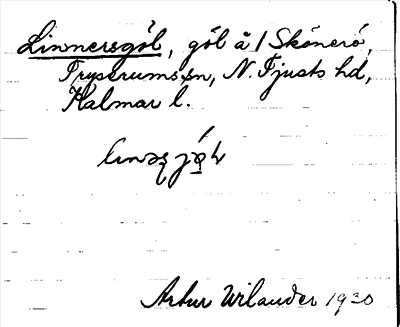 Linnersgöl, göl å / Skönerö,
Tryserums sn, N. Tjusts hd,
Kalmar l.
Artur Wilander 1930